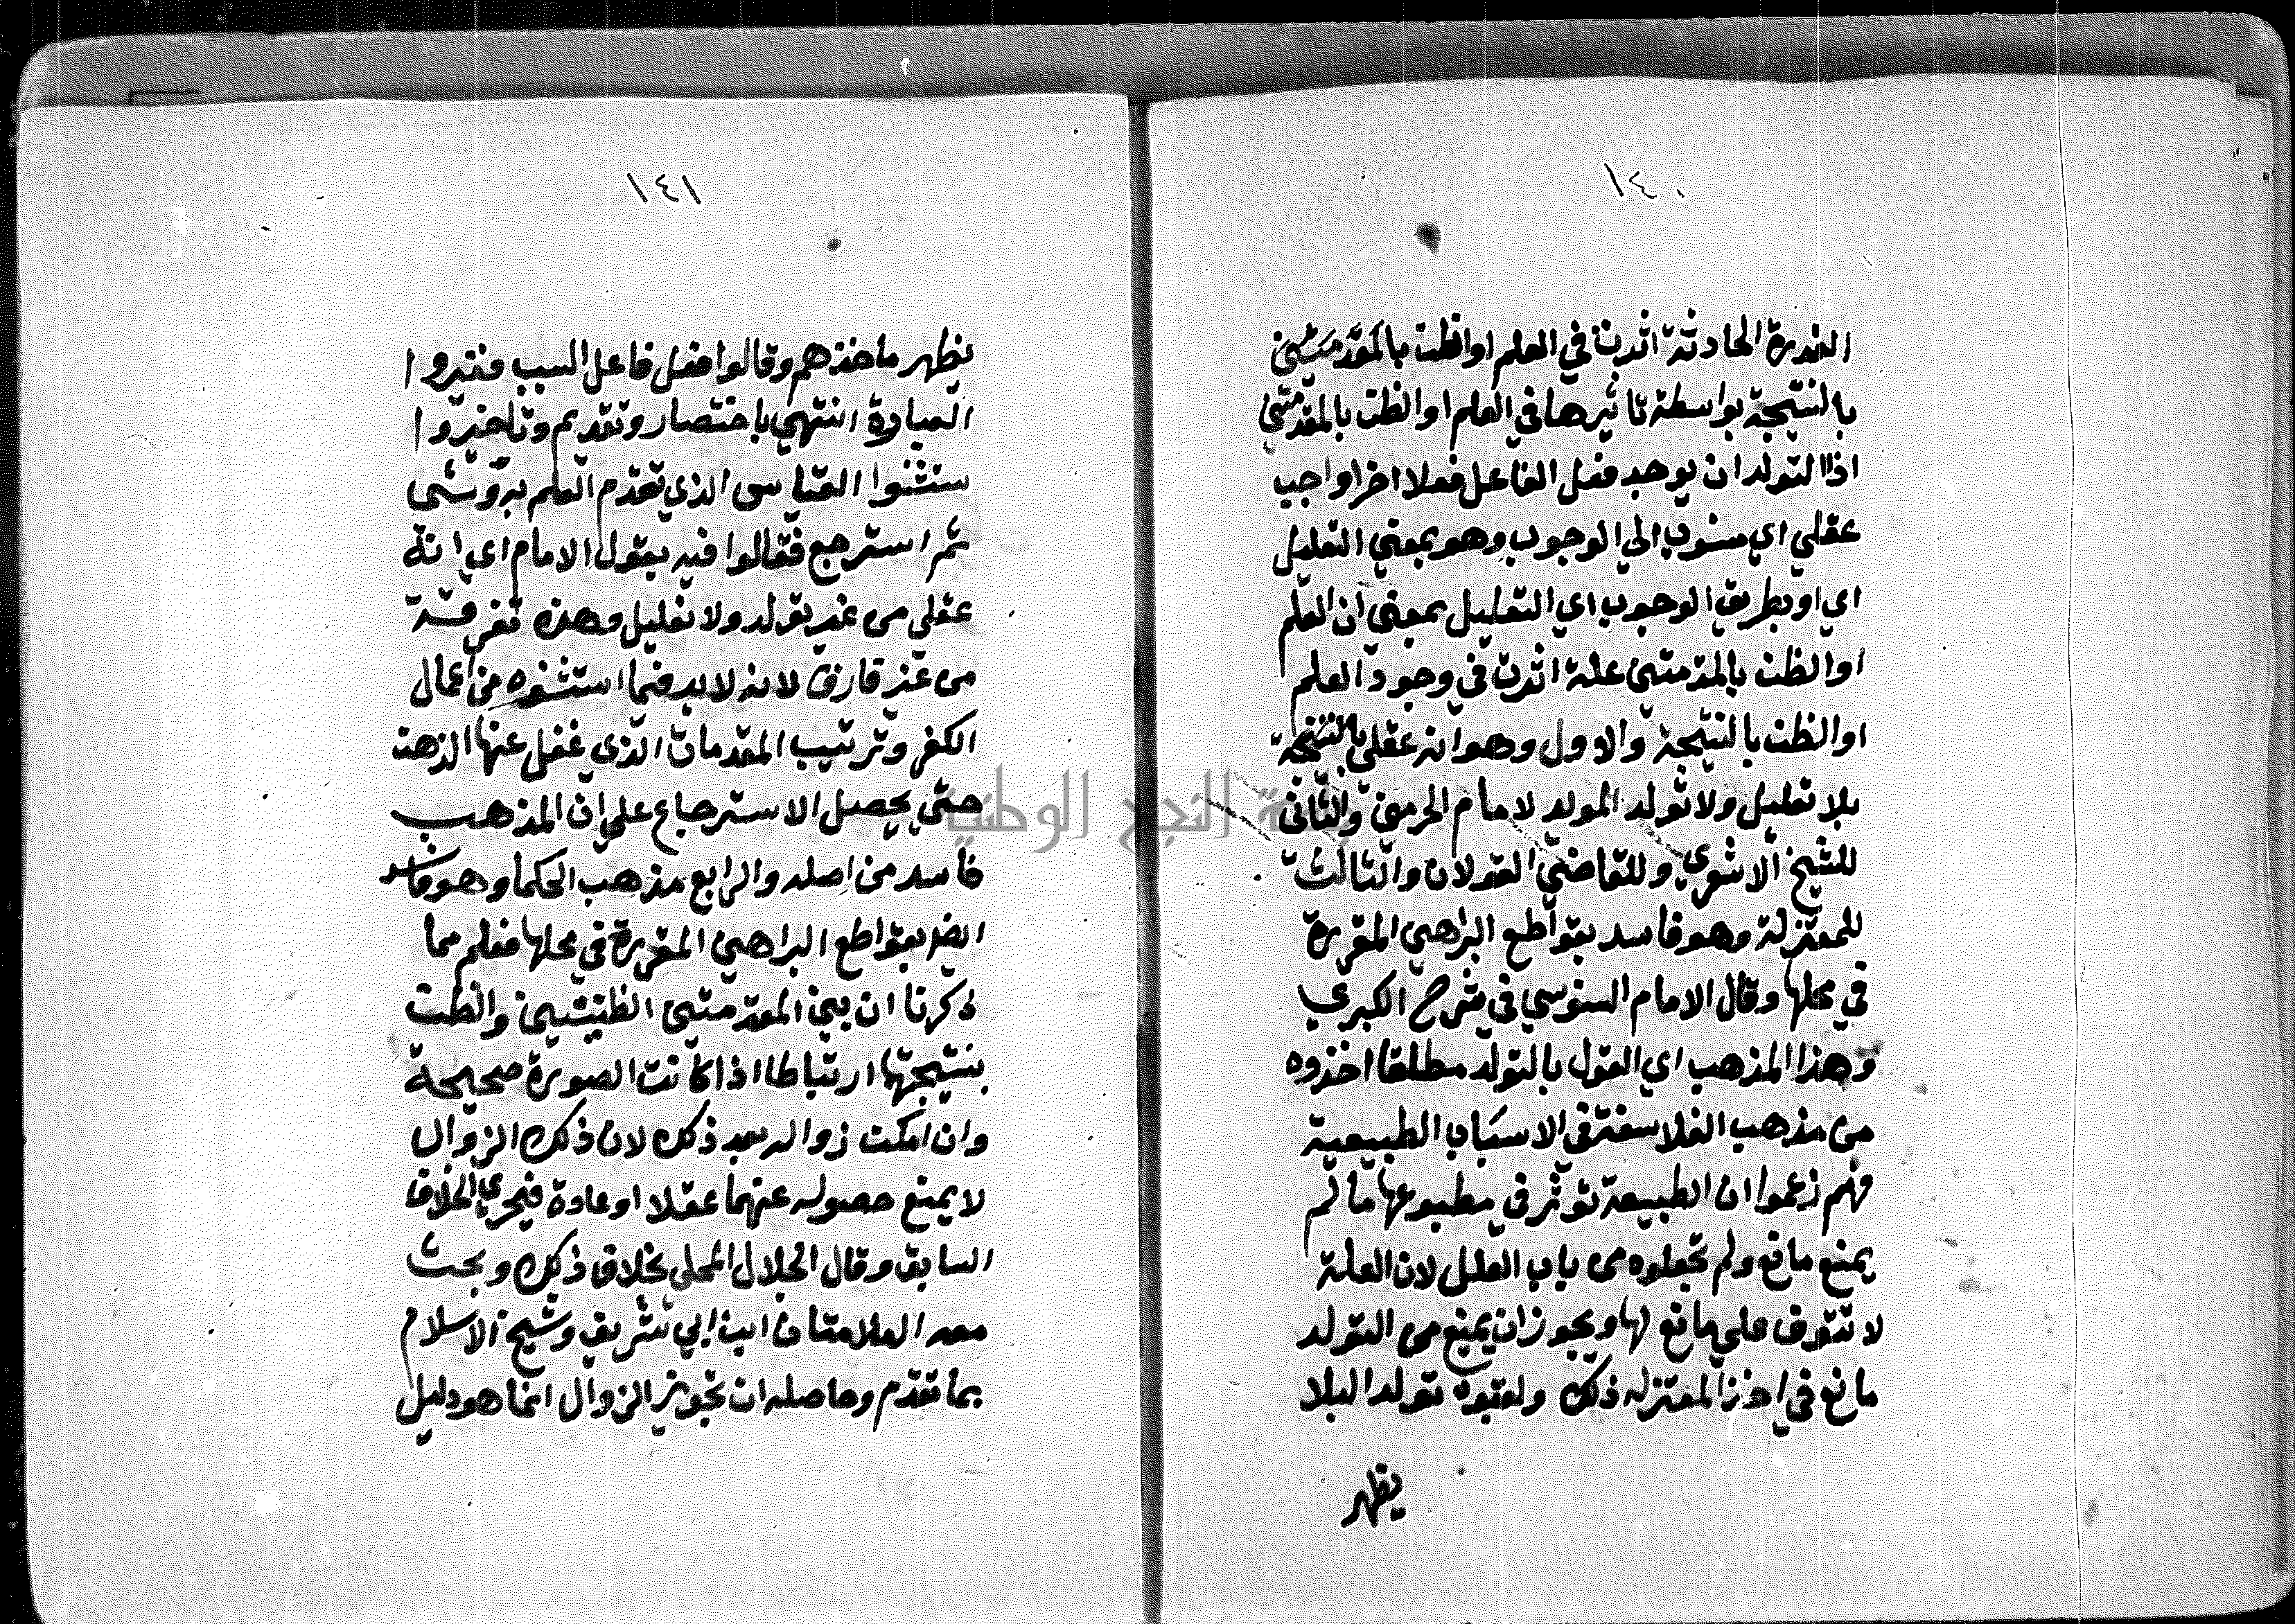 ١٤٠
القدرة الحادثة اثرت في العلم او الظن بالمقدمتين
بالنتيجة بواسطة تاثيرها في العلم او الظن بالمقدمتين
اذ التولد ان يوجد فعل الفاعل فعلا اخر او اجب
عقلي اي منسوب الي الوجوب وهو بمعني التعليل
اي او بطريق الوجوب اي التعليل بمعني ان العلم
او الظن بالمقدمتين علة اثرت في وجود العلم
او الظن بالنتيجة والاول وهو انه عقلي بالنتيجة
بلا تعليل ولا تولد المولد لامام الحرمين والثاني
للشيخ الاشعري وللقاضي القولان والثالث
للمعتزلة وهو فاسد بقواطع البراهين المقررة
في محلها وقال الامام السنوسي في شرح الكبري
وهذا المذهب اي القول بالتولد مطلقا اخذوه
من مذهب الفلاسفة في الاسباب الطبيعية
فهم زعموا ان الطبيعة تؤثر في مطبوعها ما لم
يمنع مانع ولم تجعلوه من باب العلل لان العلة
لا تتوقف علي مانع لها ويجوز ان يمنع من التولد
مانع فياخذ المعتزله ذلك ولقبوه تولد اليلا
يظهر
١٤١
يظهر ماخذهم وقالوا فعل فاعل السبب فغيروا
العبارة انتهي باختصار وتقديم وتاخير وا
ستثنوا القياس الذي تقدم العلم به ونسي
ثم استرجع فقالوا فيه بقول الامام اي انه
عقلي من غير تولد ولا تعليل وهذه تفرقة
من غير فارق لانه لابد فيما استثنوه من اعمال
الكفر وترتيب المقدمات الذي غفل عنها الذهن
حتي يحصل الاسترجاع علي ان المذهب
فاسد من اصله والرابع مذهب الحكما وهو فاسد
ايضا بقواطع البراهين المقررة في محلها فعلم مما
ذكرنا ان بين المقدمتين الظنيتين والظن
بنتيجتها ارتباطا اذا كانت الصورة صحيحة
وان امكن زواله بعد ذلك لان ذلك الزوال
لا يمنع حصوله عنهما عقلا او عادة فيجري الخلاف
السابق وقال الجلال المحلي بخلاف ذلك وبحث
معه العلامتان ابن ابي شريف وشيخ الاسلام
بما تقدم وحاصله ان تجويز الزوال انما هو دليل
جامعة النجاح الوطنية